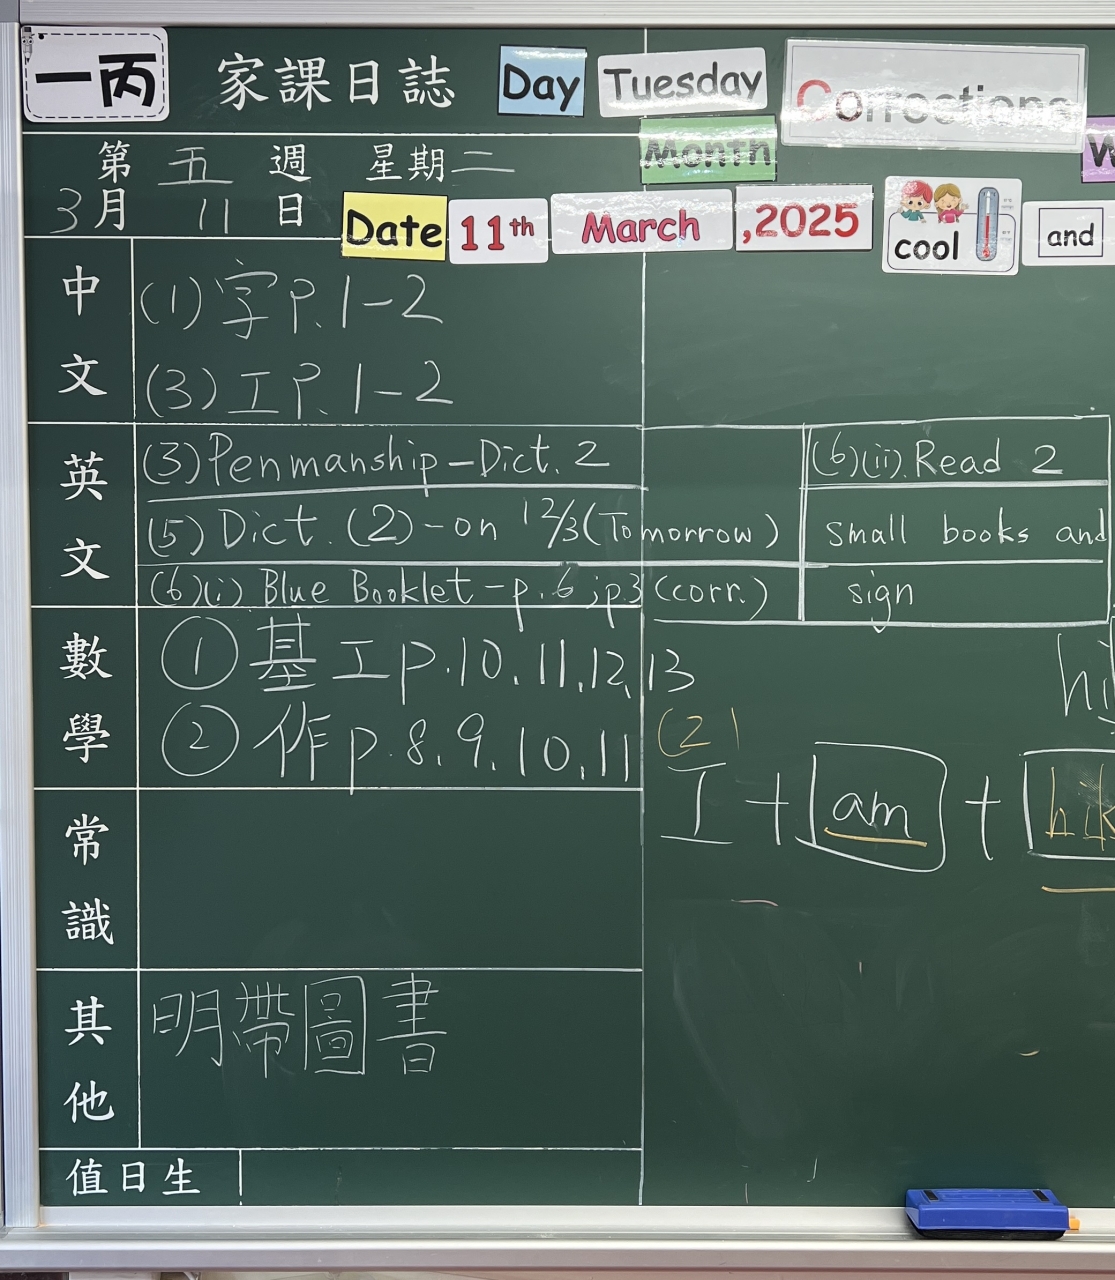 一丙 家課日誌 Day Tuesday Corrections
Month W
第 五 週 星期二
3月 11 日 Date 11th March ,2025 cool and
中文
(1) 字 P. 1-2
(3) 工 P. 1-2
英文
(3) Penmanship - Dict. 2
(5) Dict. (2) - on 12/3 (Tomorrow)
(6)(i) Blue Booklet - p. 6 ; p3 (corr.)
(6)(ii). Read 2
small books and
sign
數學
① 基工 p. 10, 11, 12, 13
② 作 p. 8, 9, 10, 11
hi
(2)
I + am + hik
常識
其他
明帶圖書
值日生